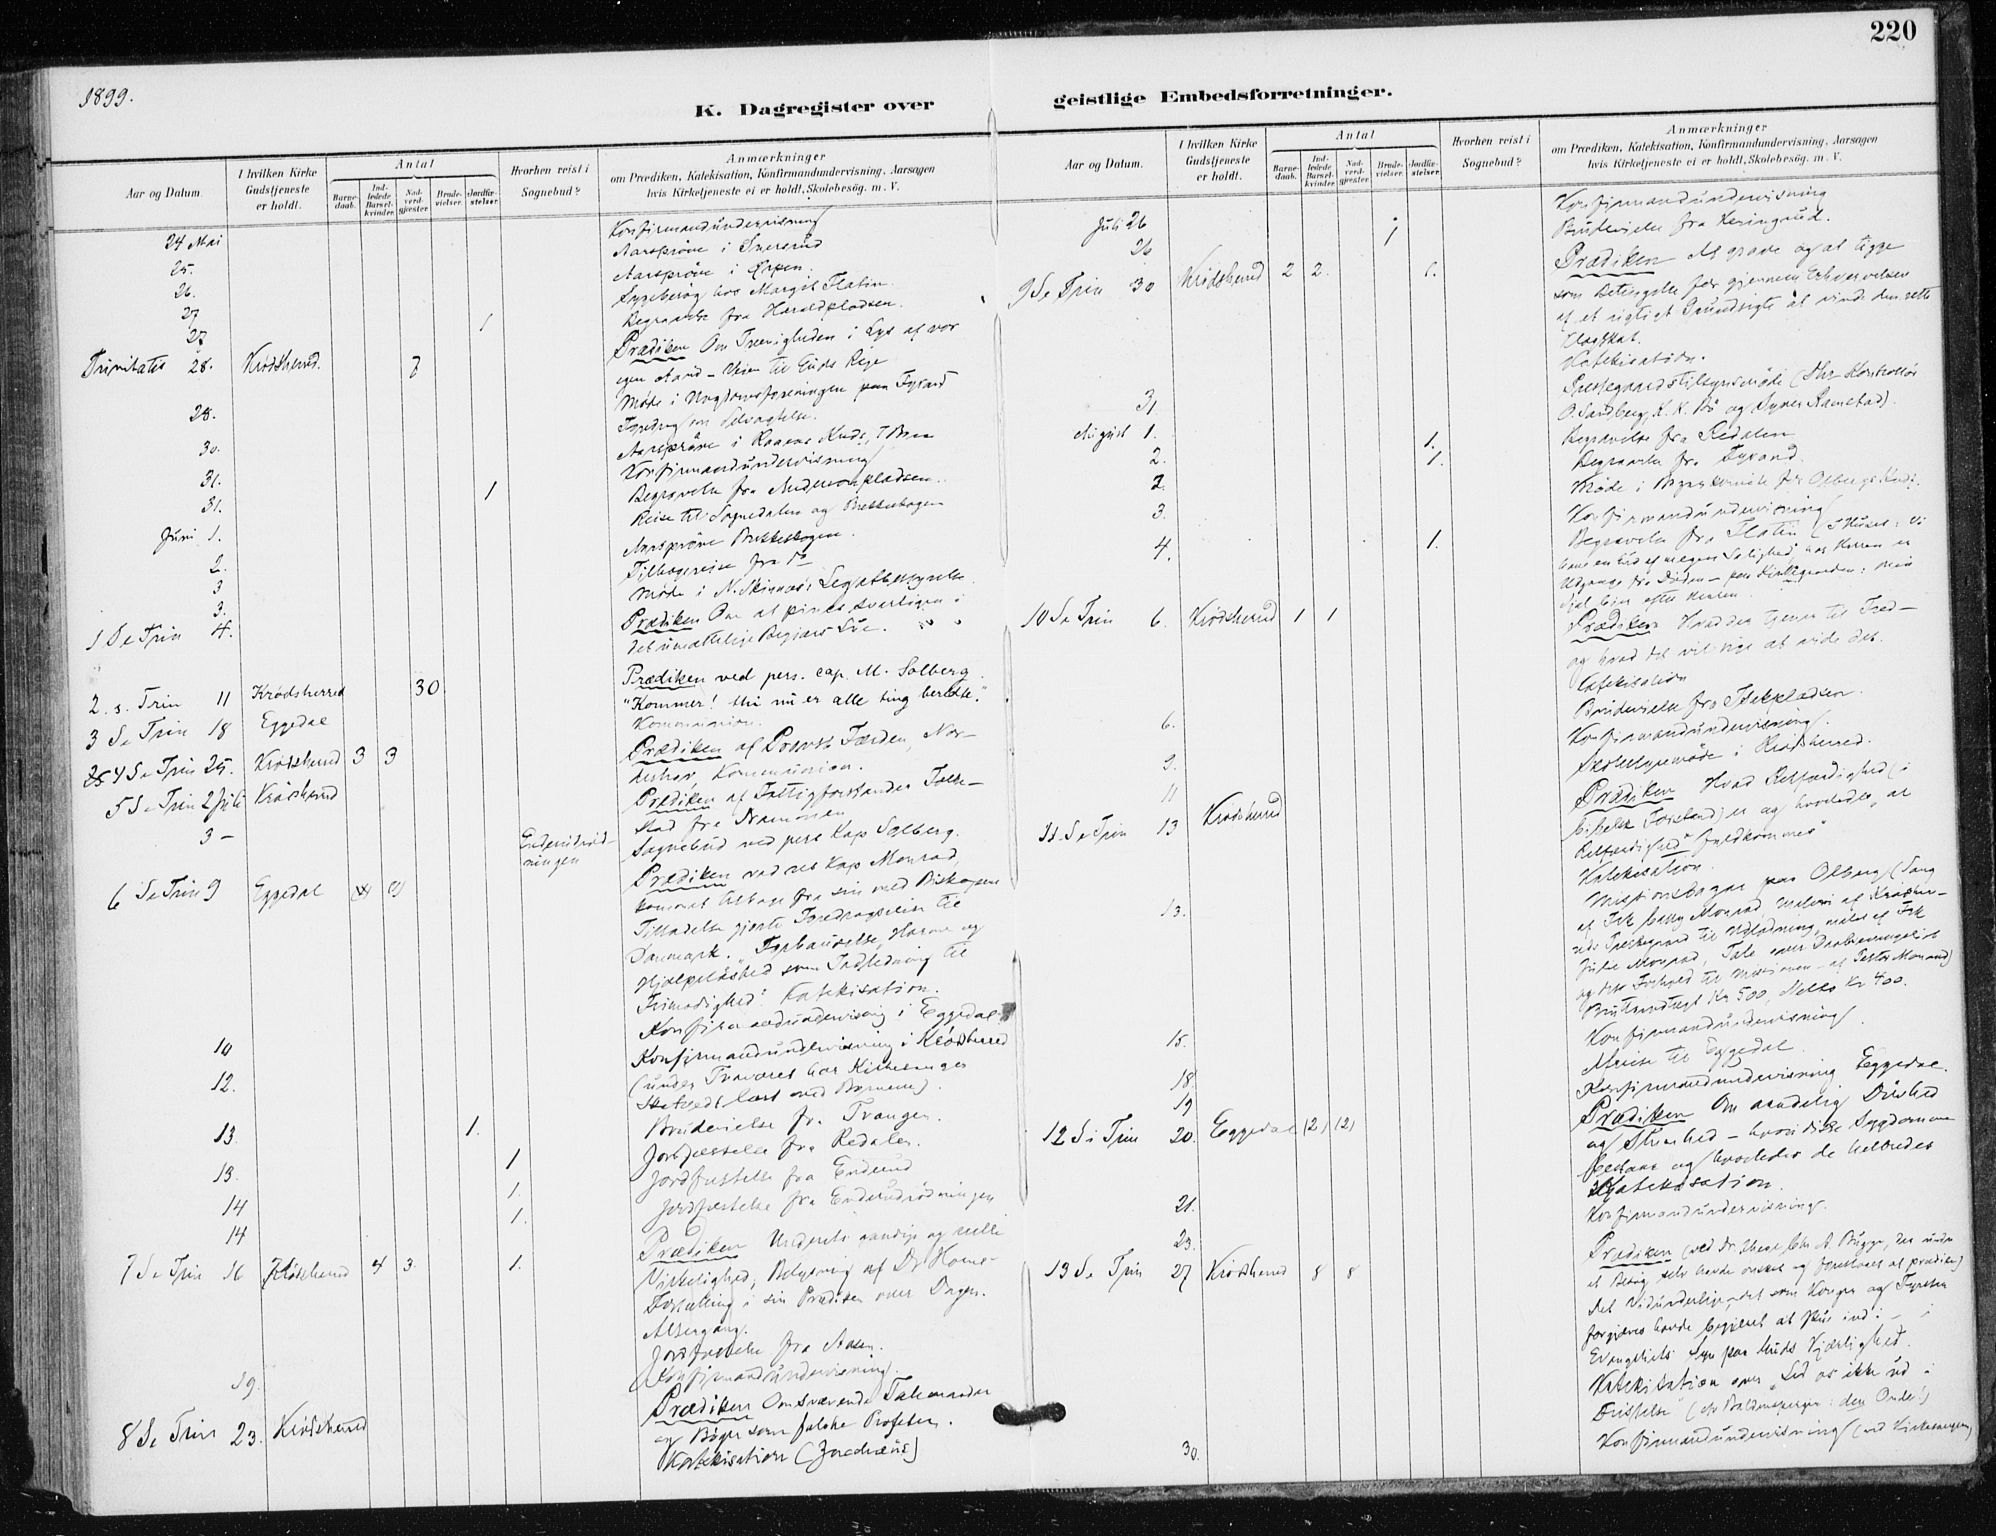 220
1899.
K. Dagregister over geistlige Embedsforretninger.
Aar og Datum.
I hvilken Kirke Gudstjeneste er holdt.
Antal
Barnedaab.
Indledede Barselkvinder.
Nadverdgjester.
Brudevielser.
Jordfæstelser.
Hvorhen reist i Sognebud?
Anmærkninger
om Prædiken, Katekisation, Konfirmandundervisning, Aarsagen
hvis Kirketjeneste ei er holdt, Skolebesøg. m. V.
24 Mai Konfirmandundervisning
25. Aarsprøve i Snersrud
26. Aarsprøve i Ørpen.
27 Sygebesøg hos Margit Flatin.
27 1 Begravelse fra Haraldpladsen.
Trinitatis 28. Krødsherred. 7 Prædiken Om Treenigheden i Lys af vor
egen Aand – Veien til Guds Rige
28. Møde i Ungdomsforeningen paa Fyrand
Foredrag om
30. Aarsprøve i
31. Konfirmandundervisning
31. 1 Begravelse fra
Juni 1. Reise til Sognedalen og
2. Aarsprøve
3 Tilbagereise fra Do
3. Møde i N. Skinnes's Legatbestyrelse
1 S e Trin 4. Prædiken Om at pines evertigen i
det umættelige Begjærs Lue.
2. s. Trin 11 Krødsherred 30 Prædiken ved pers. cap. M. Solberg.
"Kommer! thi nu er alle ting beredte."
Kommunion.
3 S e Trin 18 Eggedal Prædiken af Provsk Færden, Nor-
derhov. Kommunion.
4 S e Trin 25. Krødsherred 3 3 Prædiken af Fattigforstander Tolle-
stad fra Drammen
5 S e Trin 2 Juli Krødsherred
3 – Enderudrød-
ningen Sognebud ved pers Kap Solberg.
6 S e Trin 9 Eggedal Prædiken ved res Kap Monrad,
kommet tilbage fra sin med Biskopens
Tilladelse gjorte Foredragsreise til
Danmark. "Forbauselse, Harme og
Hjælpeløshed som Indledning til
Frimodighed". Katekisation.
10 Konfirmandundervisning i Eggedal.
12. Konfirmandundervisning i Krødsherred
(under Fraværet har Kirkesanger
læst med Børnene).
13. 1. Brudevielse fra Trangen.
13. 1 Jordfæstelse fra Redalen.
14 1. Jordfæstelse fra Enderud
14 1. Jordfæstelse fra Enderudrødningen
7 S e Trin 16 Krødsherred 4 3. 1. Prædiken Underets aandige og reelle
Virkelighed, Belysning af Dr
Fortælling i sin Prædiken over Dagen.
Altergang.
Jordfæstelse fra Aasen.
19. Konfirmandundervisning
8 S e Trin 23. Krødsherred Prædiken Omsvævende Talemaader
og Bøger som falske Profeter.
Katekisation
Aar og Datum.
I hvilken Kirke Gudstjeneste er holdt.
Antal
Barnedaab.
Indledede Barselkvinder.
Nadverdgjester.
Brudevielser.
Jordfæstelser.
Hvorhen reist i Sognebud?
Anmærkninger
om Prædiken, Katekisation, Konfirmandundervisning, Aarsagen
hvis Kirketjeneste ei er holdt, Skolebesøg. m. V.
Juli 26 Konfirmandundervisning
26 1 Brudevielse fra
9 S e Trin 30 Krødsherred 2 2. 1. Prædiken At grave og at tigge
som Betingelse for gjennem Erhvervelsen
af et rigtigt Grundsigte at vinde den rette
Klogskab.
Katekisation.
31 (Hr. Kontrollør
O. Sandberg, K. K. Bø og Ramstad).
August 1. 1. Begravelse fra Redalen
2. 1. Begravelse fra Fyrand.
2. Møde i
3. Konfirmandundervisning
4. 1. Begravelse fra Flatin
Udgange fra Døden – paa Kirkegaarden: min
Sjæl biier efter Herren.
10 S e Trin 6. Krødsherred 1 1 Prædiken Hvad der tjener til Fred –
og hvad det vil sige at vide det.
Katekisation
6. Brudevielse fra
9. Konfirmandundervisning
11 Skolestyremøde i Krødsherred.
11. S e Trin 13 Krødsherred Prædiken Hvad Retfærdighed (i
bibelsk Forstand) er og hvorledes al
Retfærdighed "fuldkommes"
Katekisation.
13. Missionsbazar paa Olberg (Sang
af Frk Monrad, Maleri af Krøds-
til Udlodning, malet af Frk
Julie Monrad, Tale
og dets Forhold til Missionen – af Pastor Monrad)
Bruttoindtægt Kr 500, Netto Kr 400.
15. Konfirmandundervisning
18. Afreise til Eggedal.
19 Konfirmandundervisning Eggedal.
12 S e Trin 20. Eggedal (2) (2) Prædiken Om aandelig Døvhed
og Stumhed – hvori disse Sygdomme
bestaar og hvorledes de helbredes
Katekisation.
21. Konfirmandundervisning.
23.
13 S e Trin 27 Krødsherred 8 8 Prædiken (ved Dr. theol. Chr. A. Bugge, der under
et Besøg selv havde ønsket og foreslaaet at prædike)
det Vidunderlige, det som Konger og Fyrster
forgjæves havde begjæret at skue ind i –
Evangeliets Syn paa Guds Kjærlighed.
Katekisation over "Led os ikke ud i
Fristelse"
30. Konfirmandundervisning (ved Kirkesangeren)